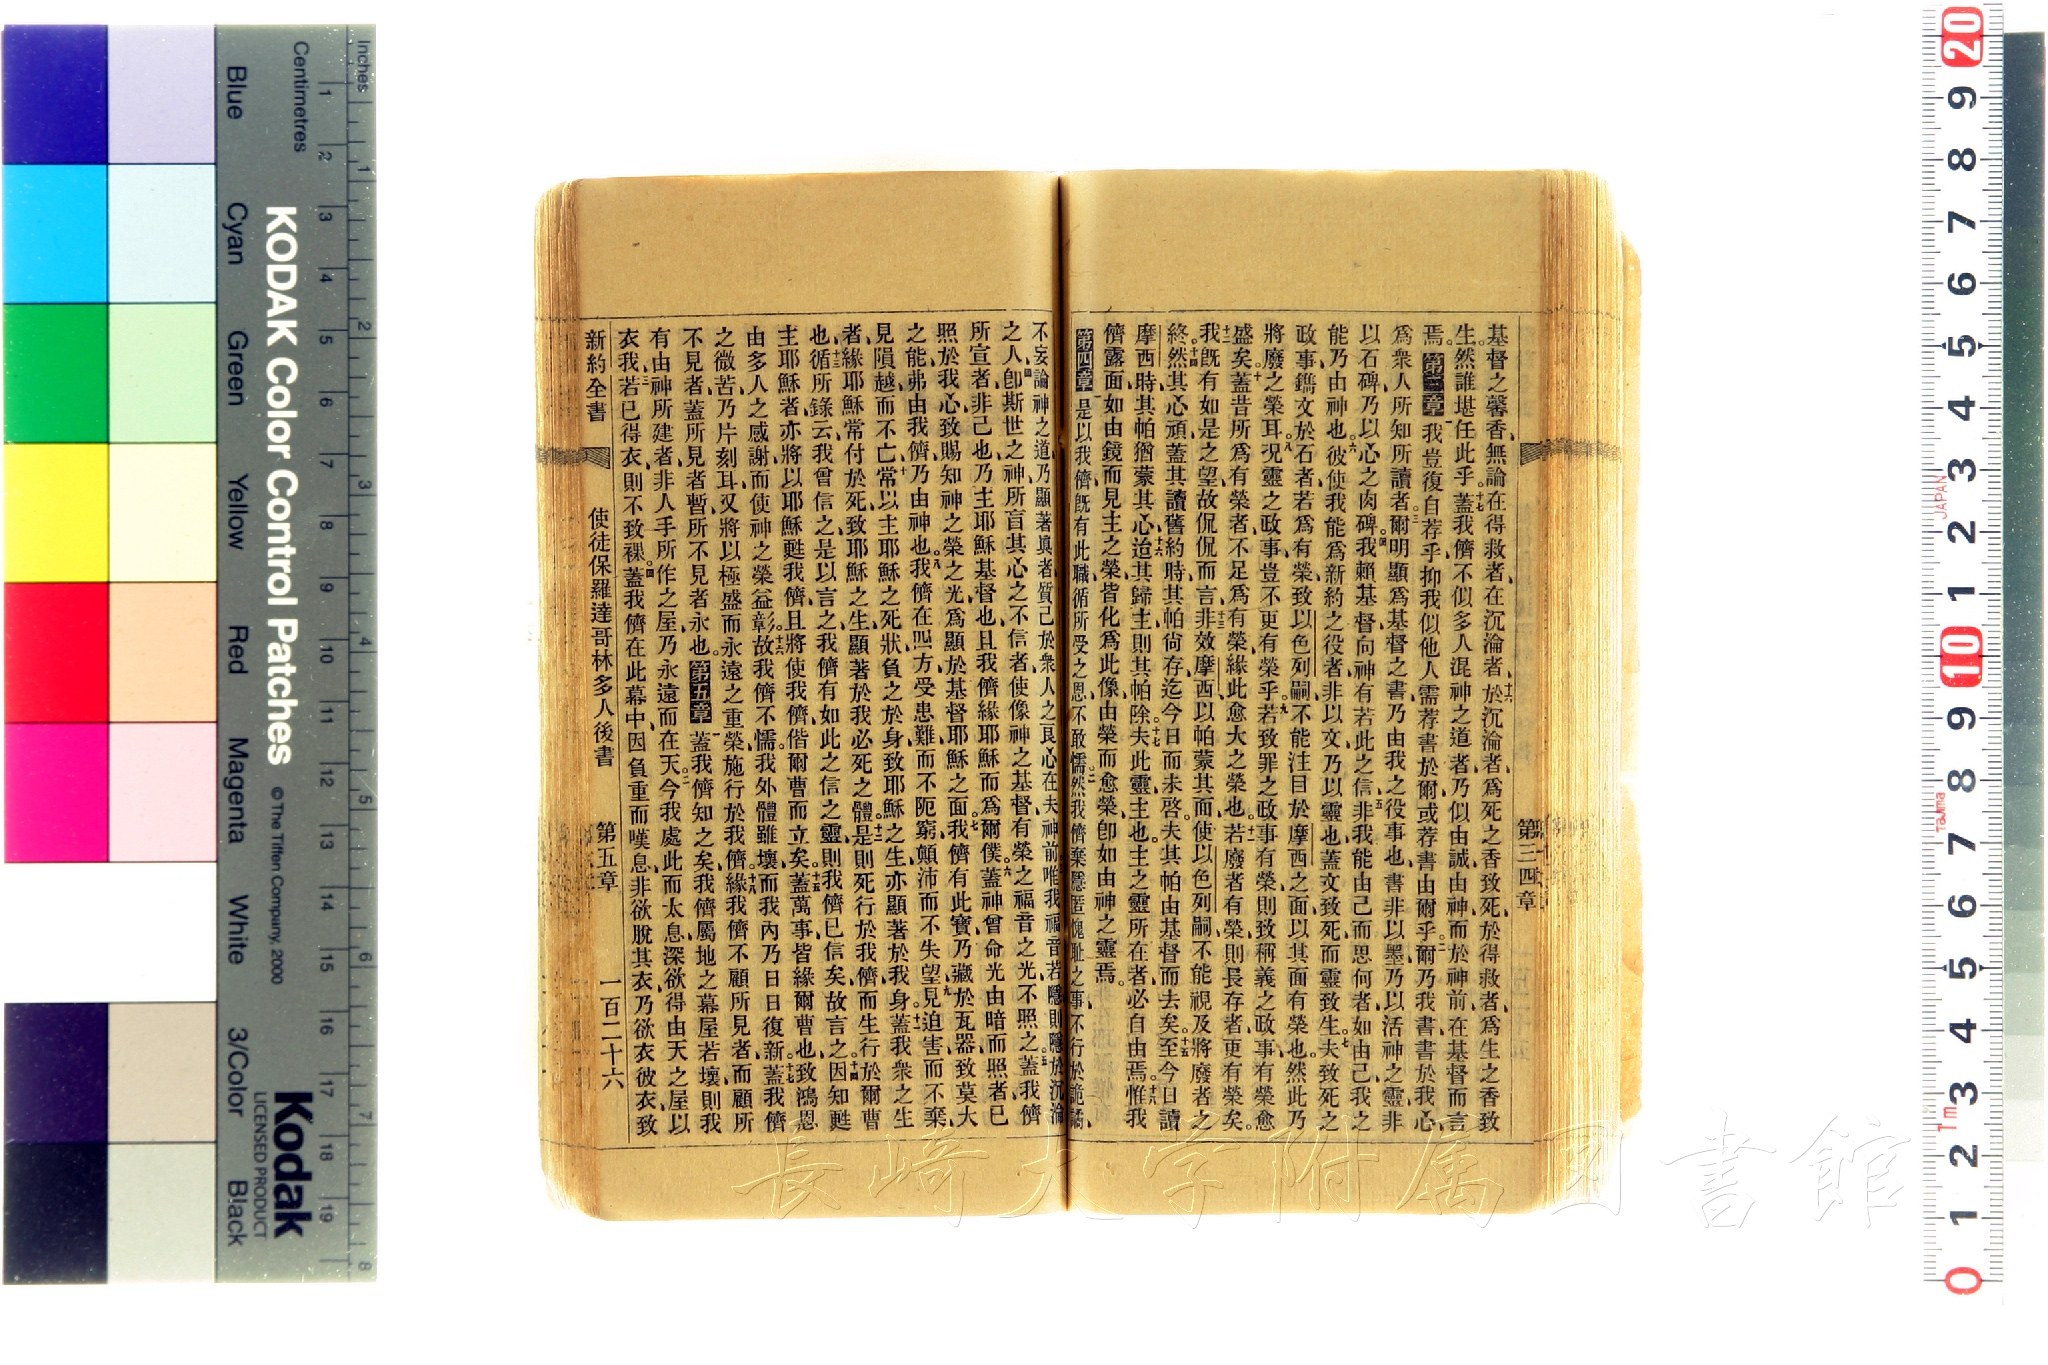 基督之馨香、無論在得救者、在沉淪者、十六於沉淪者爲死之香致死、於得救者、爲生之香致
生、然誰堪任此乎、十七蓋我儕不似多人混神之道者、乃似由誠、由神、而於神前、在基督而言
焉。第三章一我豈復自荐乎、抑我似他人需荐書於爾、或荐書由爾乎、二爾乃我書、書於我心、
爲衆人所知所讀者、三爾明顯爲基督之書、乃由我之役事也、書非以墨、乃以活神之靈、非
以石碑、乃以心之肉碑。四我賴基督向神、有若此之信、五非我能由己而思何者、如由己、我之
能乃由神也、六彼使我能爲新約之役者、非以文、乃以靈也、蓋文致死、而靈致生、七夫致死之
政事、鐫文於石者、若爲有榮、致以色列嗣不能注目於摩西之面、以其面有榮也、然此乃
將廢之榮耳、八况靈之政事、豈不更有榮乎、九若致罪之政事有榮、則致稱義之政事、有榮愈
盛矣、十蓋昔所爲有榮者、不足爲有榮、緣此愈大之榮也、十一若廢者有榮、則長存者、更有榮矣。
十二我旣有如是之望、故侃侃而言、十三非效摩西以帕蒙其面、使以色列嗣不能視及將廢者之
終、十四然其心頑、蓋其讀舊約時、其帕尙存、迄今日而未啓、夫其帕由基督而去矣、十五至今日讀
摩西時、其帕猶蒙其心、十六迨其歸主、則其帕除、十七夫此靈、主也、主之靈所在者、必自由焉、十八惟我
儕露面、如由鏡而見主之榮、皆化爲此像、由榮而愈榮、卽如由神之靈焉。
第四章一是以我儕旣有此職、循所受之恩、不敢懦、二然我儕棄隱匿愧恥之事、不行於詭譎、
不妄論神之道、乃顯著眞者、質己於衆人之良心、在夫神前、三唯我福音若隱、則隱於沉淪
之人、四卽斯世之神、所盲其心之不信者、使像神之基督有榮之福音之光不照之、五蓋我儕
所宣者、非己也、乃主耶穌基督也、且我儕緣耶穌而爲爾僕、六蓋神曾命光由暗而照者、已
照於我心、致賜知神之榮之光爲顯於基督耶穌之面、七我儕有此寶、乃藏於瓦器、致莫大
之能、弗由我儕、乃由神也、八我儕在四方受患難、而不阨窮、顛沛而不失望、九見迫害而不棄、
見隕越而不亡、十常以主耶穌之死狀負之於身、致耶穌之生、亦顯著於我身、十一蓋我衆之生
者、緣耶穌常付於死、致耶穌之生、顯著於我必死之體、十二是則死行於我儕、而生行於爾曹
也、十三循所錄云、我曾信之、是以言之、我儕有如此之信之靈、則我儕已信矣、故言之、十四因知甦
主耶穌者、亦將以耶穌甦我儕、且將使我儕偕爾曹而立矣、十五蓋萬事皆緣爾曹也、致鴻恩
由多人之感謝、而使神之榮益彰、十六故我儕不懦、我外體雖壞、而我內乃日日復新、十七蓋我儕
之微苦、乃片刻耳、又將以極盛而永遠之重榮、施行於我儕、十八緣我儕不顧所見者、而顧所
不見者、蓋所見者暫、所不見者永也。第五章一蓋我儕知之矣、我儕屬地之幕屋若壞、則我
有由神所建者、非人手所作之屋、乃永遠而在天、二今我處此而太息、深欲得由天之屋以
衣我、三若已得衣、則不致裸、四蓋我儕在此幕中、因負重而嘆息、非欲脫其衣、乃欲衣彼衣、致
新約全書
使徒保羅達哥林多人後書
第五章
一百二十六
第三四章
長崎大学附属図書館
Inches
Centimetres
KODAK Color Control Patches
© The Tiffen Company, 2000
Kodak
LICENSED PRODUCT
Blue
Cyan
Green
Yellow
Red
Magenta
White
3/Color
Black
JAPAN
Tajima